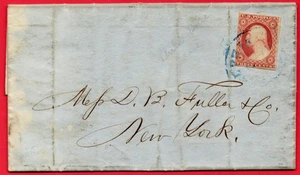 Mess D. B. Fuller & Co.
New York.